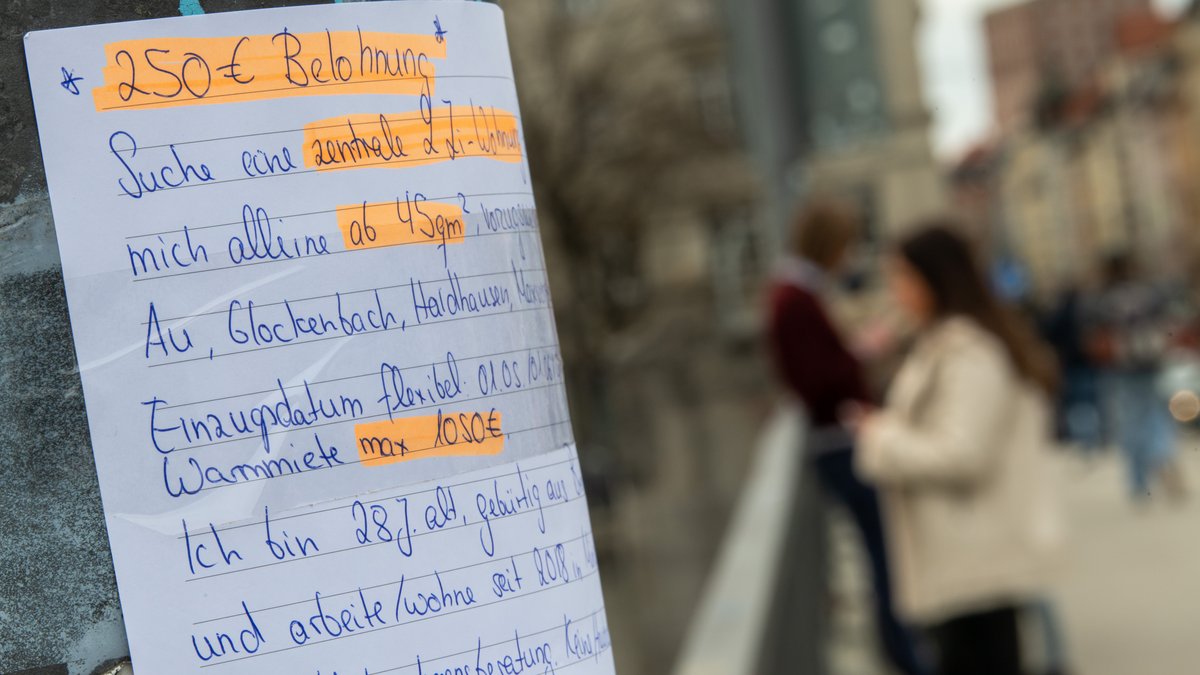 * 250 € Belohnung *
Suche eine zentrale 2 Zi-Wohnung
mich alleine ab 45qm²,
Au, Glockenbach, Haidhausen,
Einzugsdatum flexibel: 01.05./01.
Warmmiete max 1050€.
Ich bin 28 J. alt, gebürtig aus
und arbeite/wohne seit 2018 in